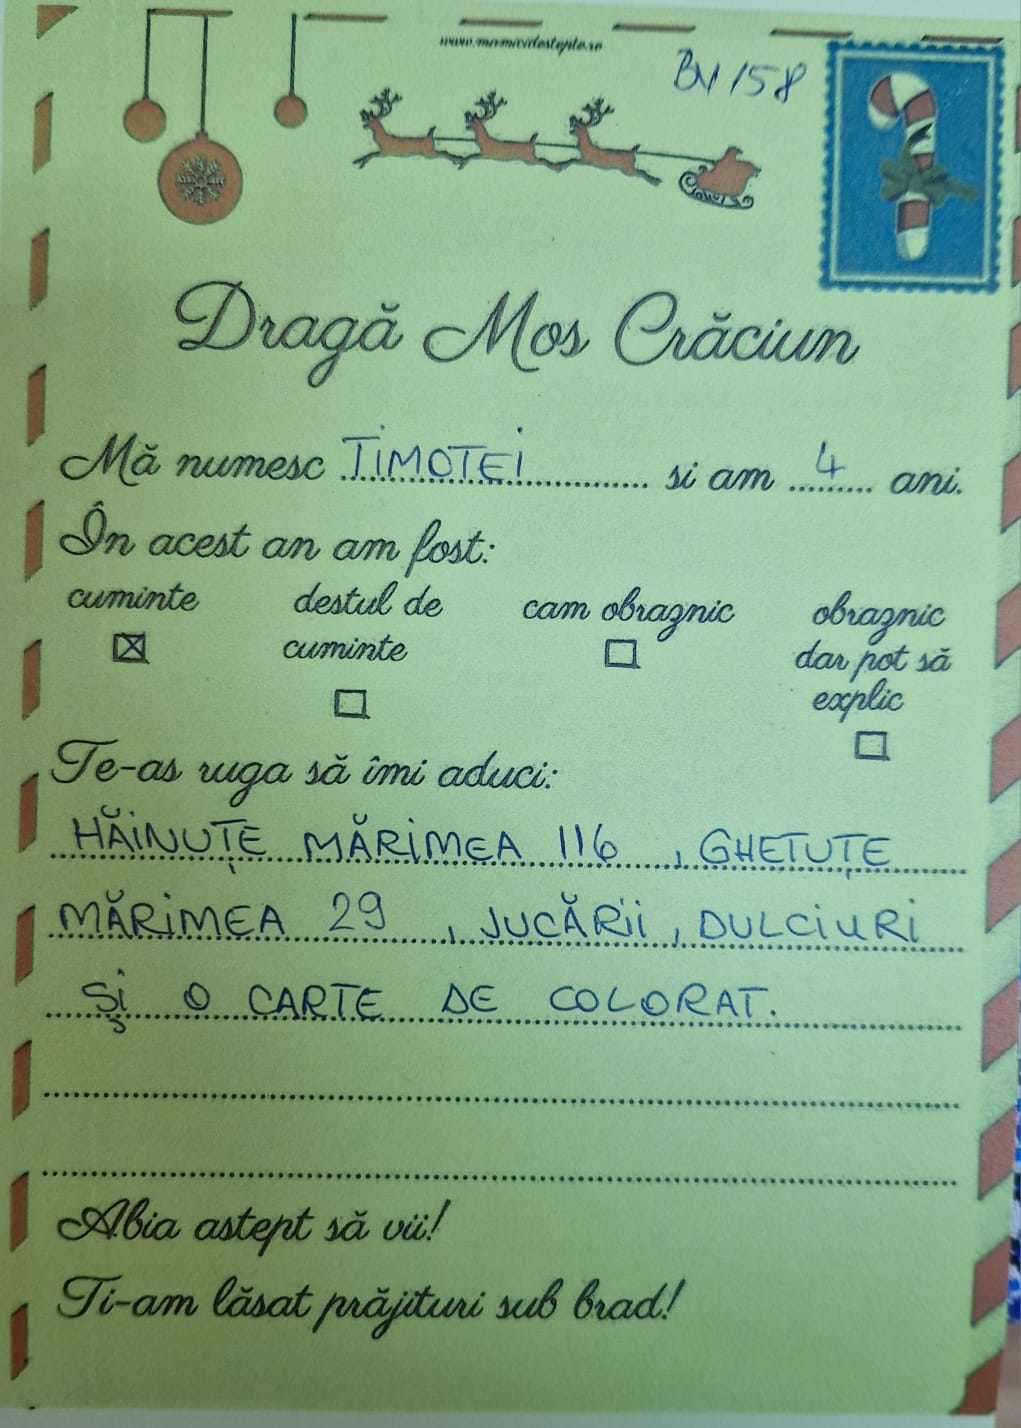 www.mamicidestepte.ro
BV 158
Dragă Mos Crăciun
Mă numesc TIMOTEI si am 4 ani.
În acest an am fost:
cuminte destul de cuminte cam obraznic obraznic dar pot să explic
Te-as ruga să îmi aduci:
HĂINUȚE MĂRIMEA 116 , GHETUȚE
MĂRIMEA 29 , JUCĂRII , DULCIURI
ȘI O CARTE DE COLORAT.
Abia astept să vii!
Ti-am lăsat prăjituri sub brad!